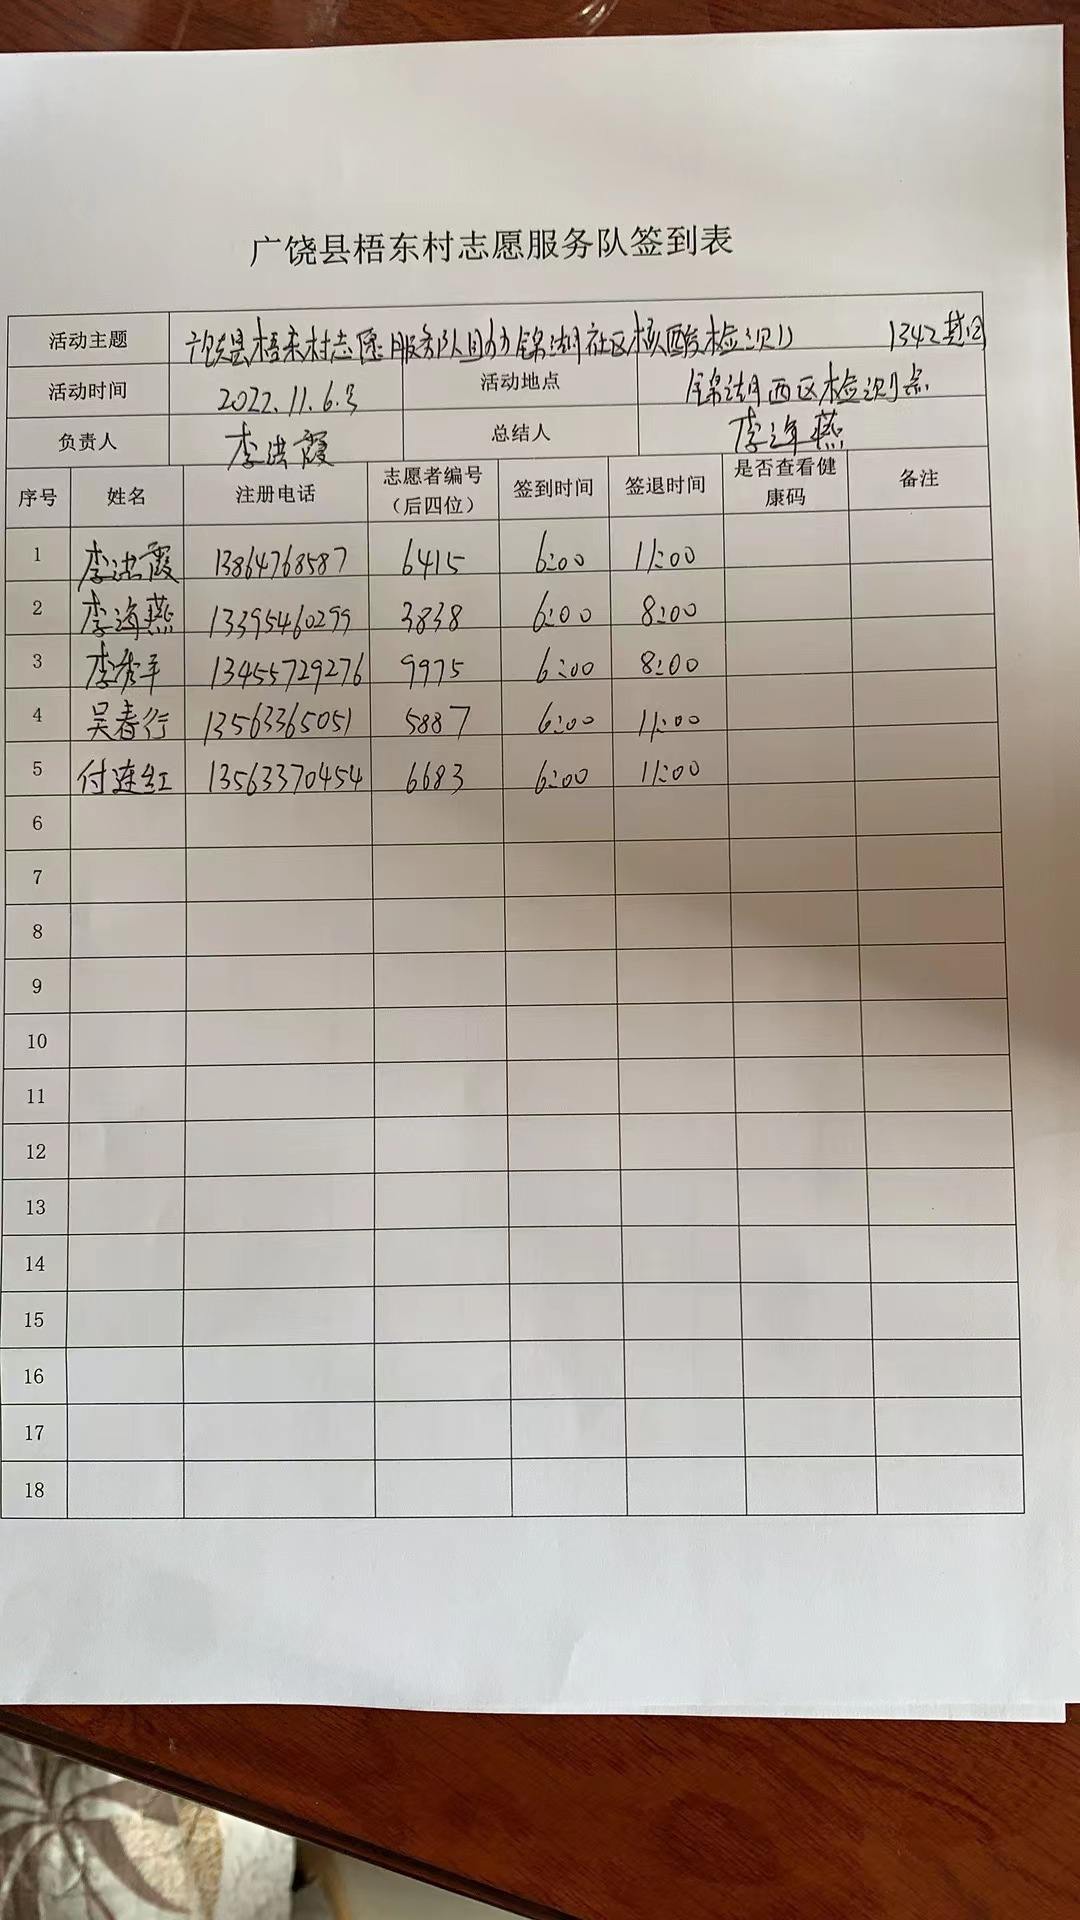 广饶县梧东村志愿服务队签到表
活动主题 广饶县梧东村志愿服务队助力锦湖社区核酸检测 1342期
活动时间 2022.11.6号 活动地点 锦湖西区检测点
负责人 李洪霞 总结人 李海燕
序号 姓名 注册电话 志愿者编号（后四位） 签到时间 签退时间 是否查看健康码 备注
1 李洪霞 13864768587 6415 6:00 11:00
2 李海燕 13395460299 3838 6:00 8:00
3 李秀平 13455729276 9975 6:00 8:00
4 吴春行 13563365051 5887 6:00 11:00
5 付连红 13563370454 6683 6:00 11:00
6
7
8
9
10
11
12
13
14
15
16
17
18